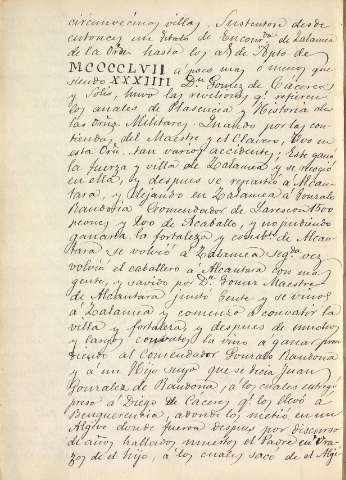 circunvecinas villas. Sustentose desde
entonces en titulo de Encomda de Zalamea
de la Orn hasta los as de Xpto. de
MCCCCLVII á poco mas ó menos que
siendo XXXIIII Dn Gomez de Caceres
y Solis, huvo las rivoluciones q. refieren
los anales de Plasencia y Historia de
las Ornes Militares. Quando por las con-
tiendas del Maestre y el Clavero, uvo en
esta Orn. tan varios accidentes; Este ganó
la fuerza y villa de Zalamea y se recogió
en ella, y despues se repartio á Alcan-
tara, y dejando en Zalamea á Gonzalo
Randona Comendador de Lares con 1500
peones y 200 de Acaballo, y no pudiendo
ganarla la fortaleza y convto de Alcan-
tara se volvió á Zalamea segda vez
volvió el caballero á Alcantara con mas
gente, y savido por Dn Gomez Maestre
de Alcantara juntó Gente y se vino
á Zalamea y comenzó á convatir la
villa y fortaleza, y despues de muchos
y largos convates la vino á ganar pren-
diendo al Comendador Gonzalo Randona
y á un Hijo suyo que se decia Juan
Gonzalez de Randona, á los cuales entregó
preso á Diego de Caceres q. los llevó á
Benquerencia, adonde los metió en un
Algive donde fueron despues por discurso
de años hallados muertos el Padre en Vra-
zos de el hijo, á los cuales sacó de el Algi-